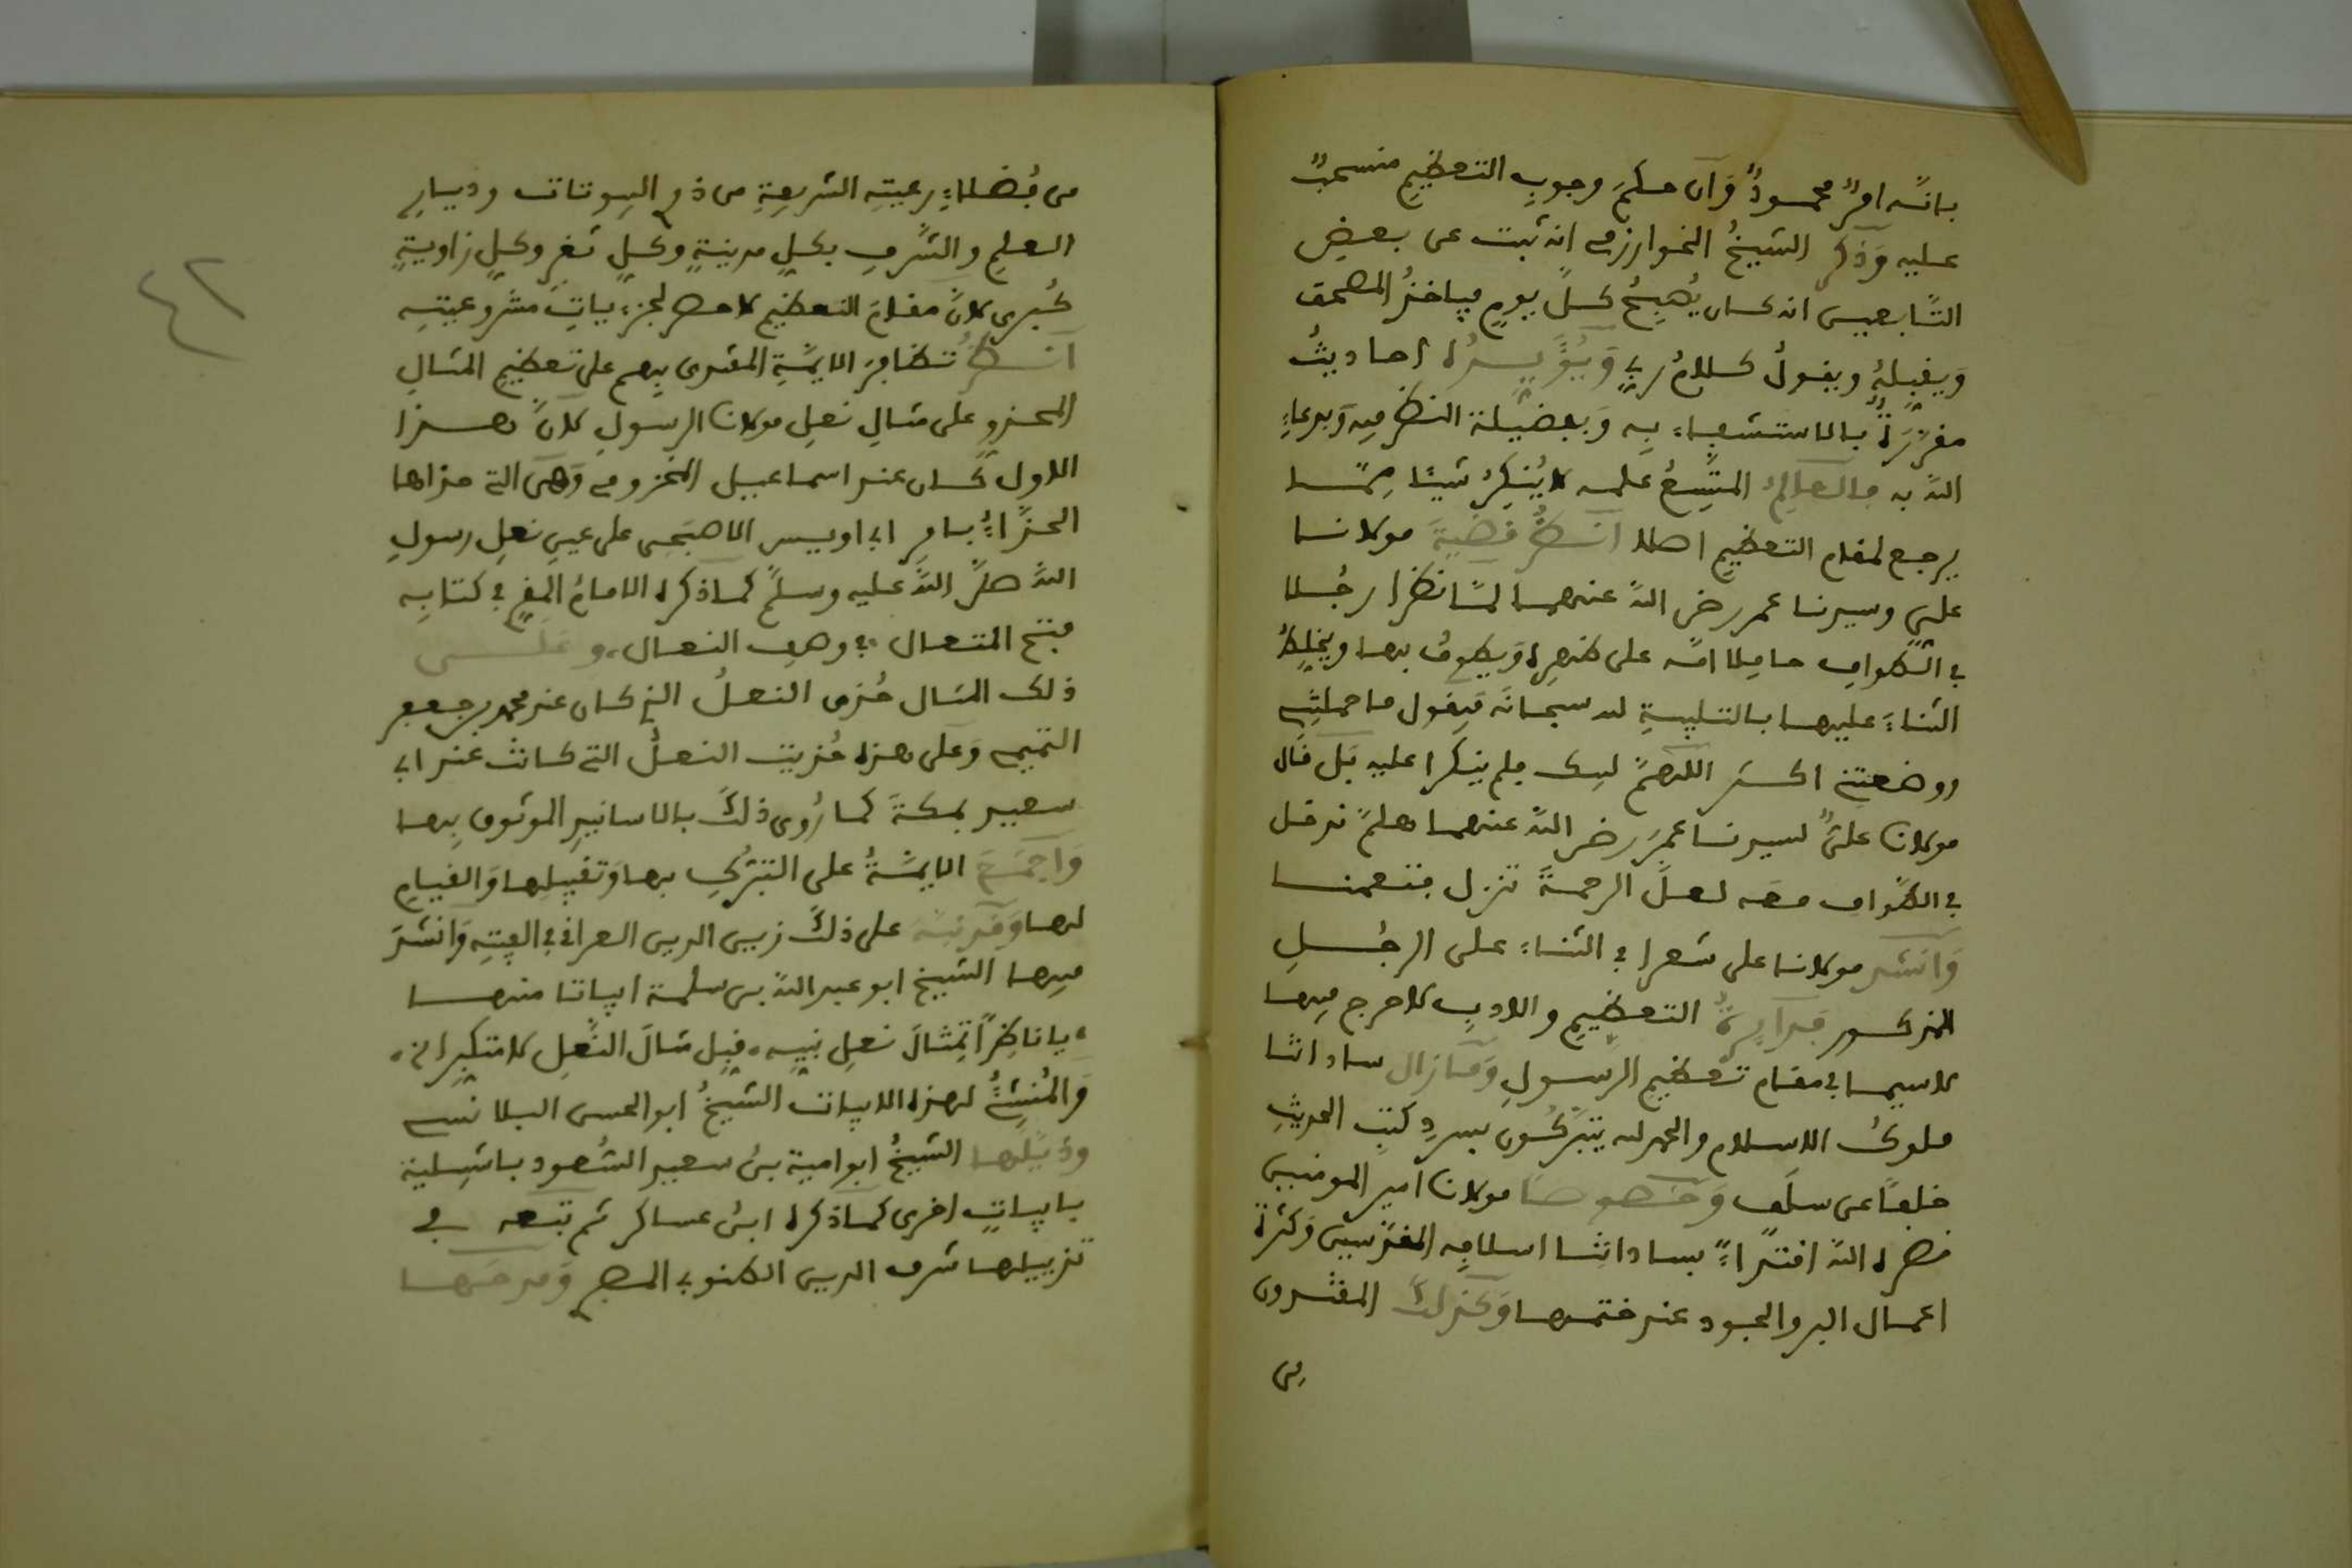 بانّه امرٌ محمودٌ وَان حكمَ وجوبِ التعظيمِ منسحبٌ
عليه وَذكر الشيخُ الخوارزمي انه ثبت عن بعضِ
التّابعين انه كان يُصبِحُ كلَّ يومٍ فياخذُ المصحف
وَيقبِّلهُ ويقولُ كلامُ ربي وَيُؤَيِّدُه احاديثُ
مقرّرَةٌ بالاستشفاء به وَبفضيلة النظر فيه وَبدعاءِ
اللّه به فالعالِمُ المتّسِعُ علمه لا يُنكِرُ شيئا مِمّا
يرجع لمقام التعظيمِ اصلا انظُر قضيَّةَ مولانا
عليٍّ وسيدنا عمر رضي اللّه عنهما لمّا نظرا رجُلا
في الطّوافِ حاملا امّه على ظهرِه وَيطوفُ بها ويخلِطُ
الثناءَ عليها بالتلبيةِ لله سبحانَه فيقول ما حملتنِي
ووضعتني اكثَر اللّهمّ لبيك فلم ينكرا عليه بَل قال
مولانا عليٌّ لسيدنا عمرَ رضي اللّه عنهما هلمّ ندخل
في الطّواف معَه لعلّ الرحمةَ تنزل فتعمنا
وَانشد مولانا علي شعرا في الثناءِ على الرجُلِ
المذكور فدَايرةُ التعظيمِ والادبِ لا حرج فيها
لا سيما في مقام تعظيمِ الرّسولِ وَمَا زال ساداتنا
ملوكُ الاسلام والحمد لله يتبرّكُون بسردِ كتبِ الحديثِ
خلفاً عن سلَف وَخصوصًا مولانا امير المومنين
نصره اللّه اقتداءً بساداتنا اسلافِه المقدّسين وَكثرة
اعمال البر والجود عند ختمها وَكذلك المقتدون
من
من فُضلاءِ رعيتِه الشريفةِ من ذوي البيوتات وديارِ
العلمِ والشّرفِ بكلِّ مدينةٍ وكلِّ ثغرٍ وكلِّ زاويةٍ
كُبرى لانّ مقامَ التعظيمِ لا حصر لجزءياتِ مشروعيتِه
انظُر تظافرَ الايمّةِ المقتدى بِهم على تعظيمِ المثالِ
المحذوِ على مثالِ نعلِ مولانا الرسولِ لانّ هذا
الاول كان عند اسماعيل المخزومي وَهي التي حذاها
الحذّاءُ بامرِ ابي اويس الاصبَحي على عينِ نعلِ رسولِ
اللّه صلّى اللّه عليه وسلّم كما ذكره الامامُ المقري في كتابِه
فتح المتعال، في وصف النعال، وعلى
ذلك المثال حُذي النعلُ الذي كان عند محمد بن جعفر
التميمي وَعلى هذه حُذيت النعلُ التي كانت عند ابي
سعيد بمكةَ كما رُوي ذلكَ بالاسانيدِ الموثوق بِها
وَاجمَع الايمّةُ على التبرُّكِ بها وَتقبيلِها وَالقيامِ
لها وَقد نبّه على ذلكَ زين الدين العراقي في الفيتِه وَانشدَ
فيها الشيخ ابو عبد اللّه بن سلمة ابياتا منها
، يا ناظِراً تِمثالَ نعلِ نبيِّه ، قبِّل مثالَ النّعلِ لا متكبِّرا الخ ،
وَالمُنشِئُ لهذه الابيات الشيخُ ابو الحسن البلانسي
وذيّلَها الشيخُ ابو امية بنُ سعيد السُّعود باشبيلية
بابياتٍ اخرى كما ذكره ابنُ عساكر ثم تبعَه في
تذييلها شرف الدين الطنوبي المصري وَمدحَها
٤٢